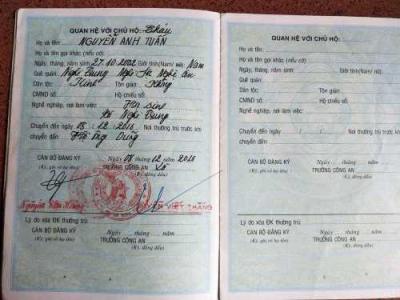 QUAN HỆ VỚI CHỦ HỘ: Cháu
Họ và tên: NGUYỄN ANH TUẤN
Họ và tên gọi khác (nếu có):
Ngày, tháng, năm sinh: 27.10.2002 Giới tính (Nam/ nữ): Nam
Quê quán: Nghi Trung Nghi Lộc Nghệ An
Dân tộc: Kinh Tôn giáo: Không
CMND số: Hộ chiếu số:
Nghề nghiệp, nơi làm việc: Học sinh
Nghi Trung
Chuyển đến ngày 08.12.2016 Nơi thường trú trước khi
chuyển đến:
Ngày 08 tháng 12 năm 2016
CÁN BỘ ĐĂNG KÝ
TRƯỞNG CÔNG AN
VIẾT THẮNG
Lý do xóa ĐK thường trú:
Ngày tháng năm
CÁN BỘ ĐĂNG KÝ
(Ký, ghi rõ họ tên)
TRƯỞNG CÔNG AN
(Ký, đóng dấu)
QUAN HỆ VỚI CHỦ HỘ:
Họ và tên:
Họ và tên gọi khác (nếu có):
Ngày, tháng, năm sinh: Giới tính (Nam/ nữ):
Quê quán:
Dân tộc: Tôn giáo:
CMND số: Hộ chiếu số:
Nghề nghiệp, nơi làm việc:
Chuyển đến ngày Nơi thường trú trước khi
chuyển đến:
Ngày tháng năm
CÁN BỘ ĐĂNG KÝ
(Ký, ghi rõ họ tên)
TRƯỞNG CÔNG AN
(Ký, đóng dấu)
Lý do xóa ĐK thường trú:
Ngày tháng năm
CÁN BỘ ĐĂNG KÝ
(Ký, ghi rõ họ tên)
TRƯỞNG CÔNG AN
(Ký, đóng dấu)